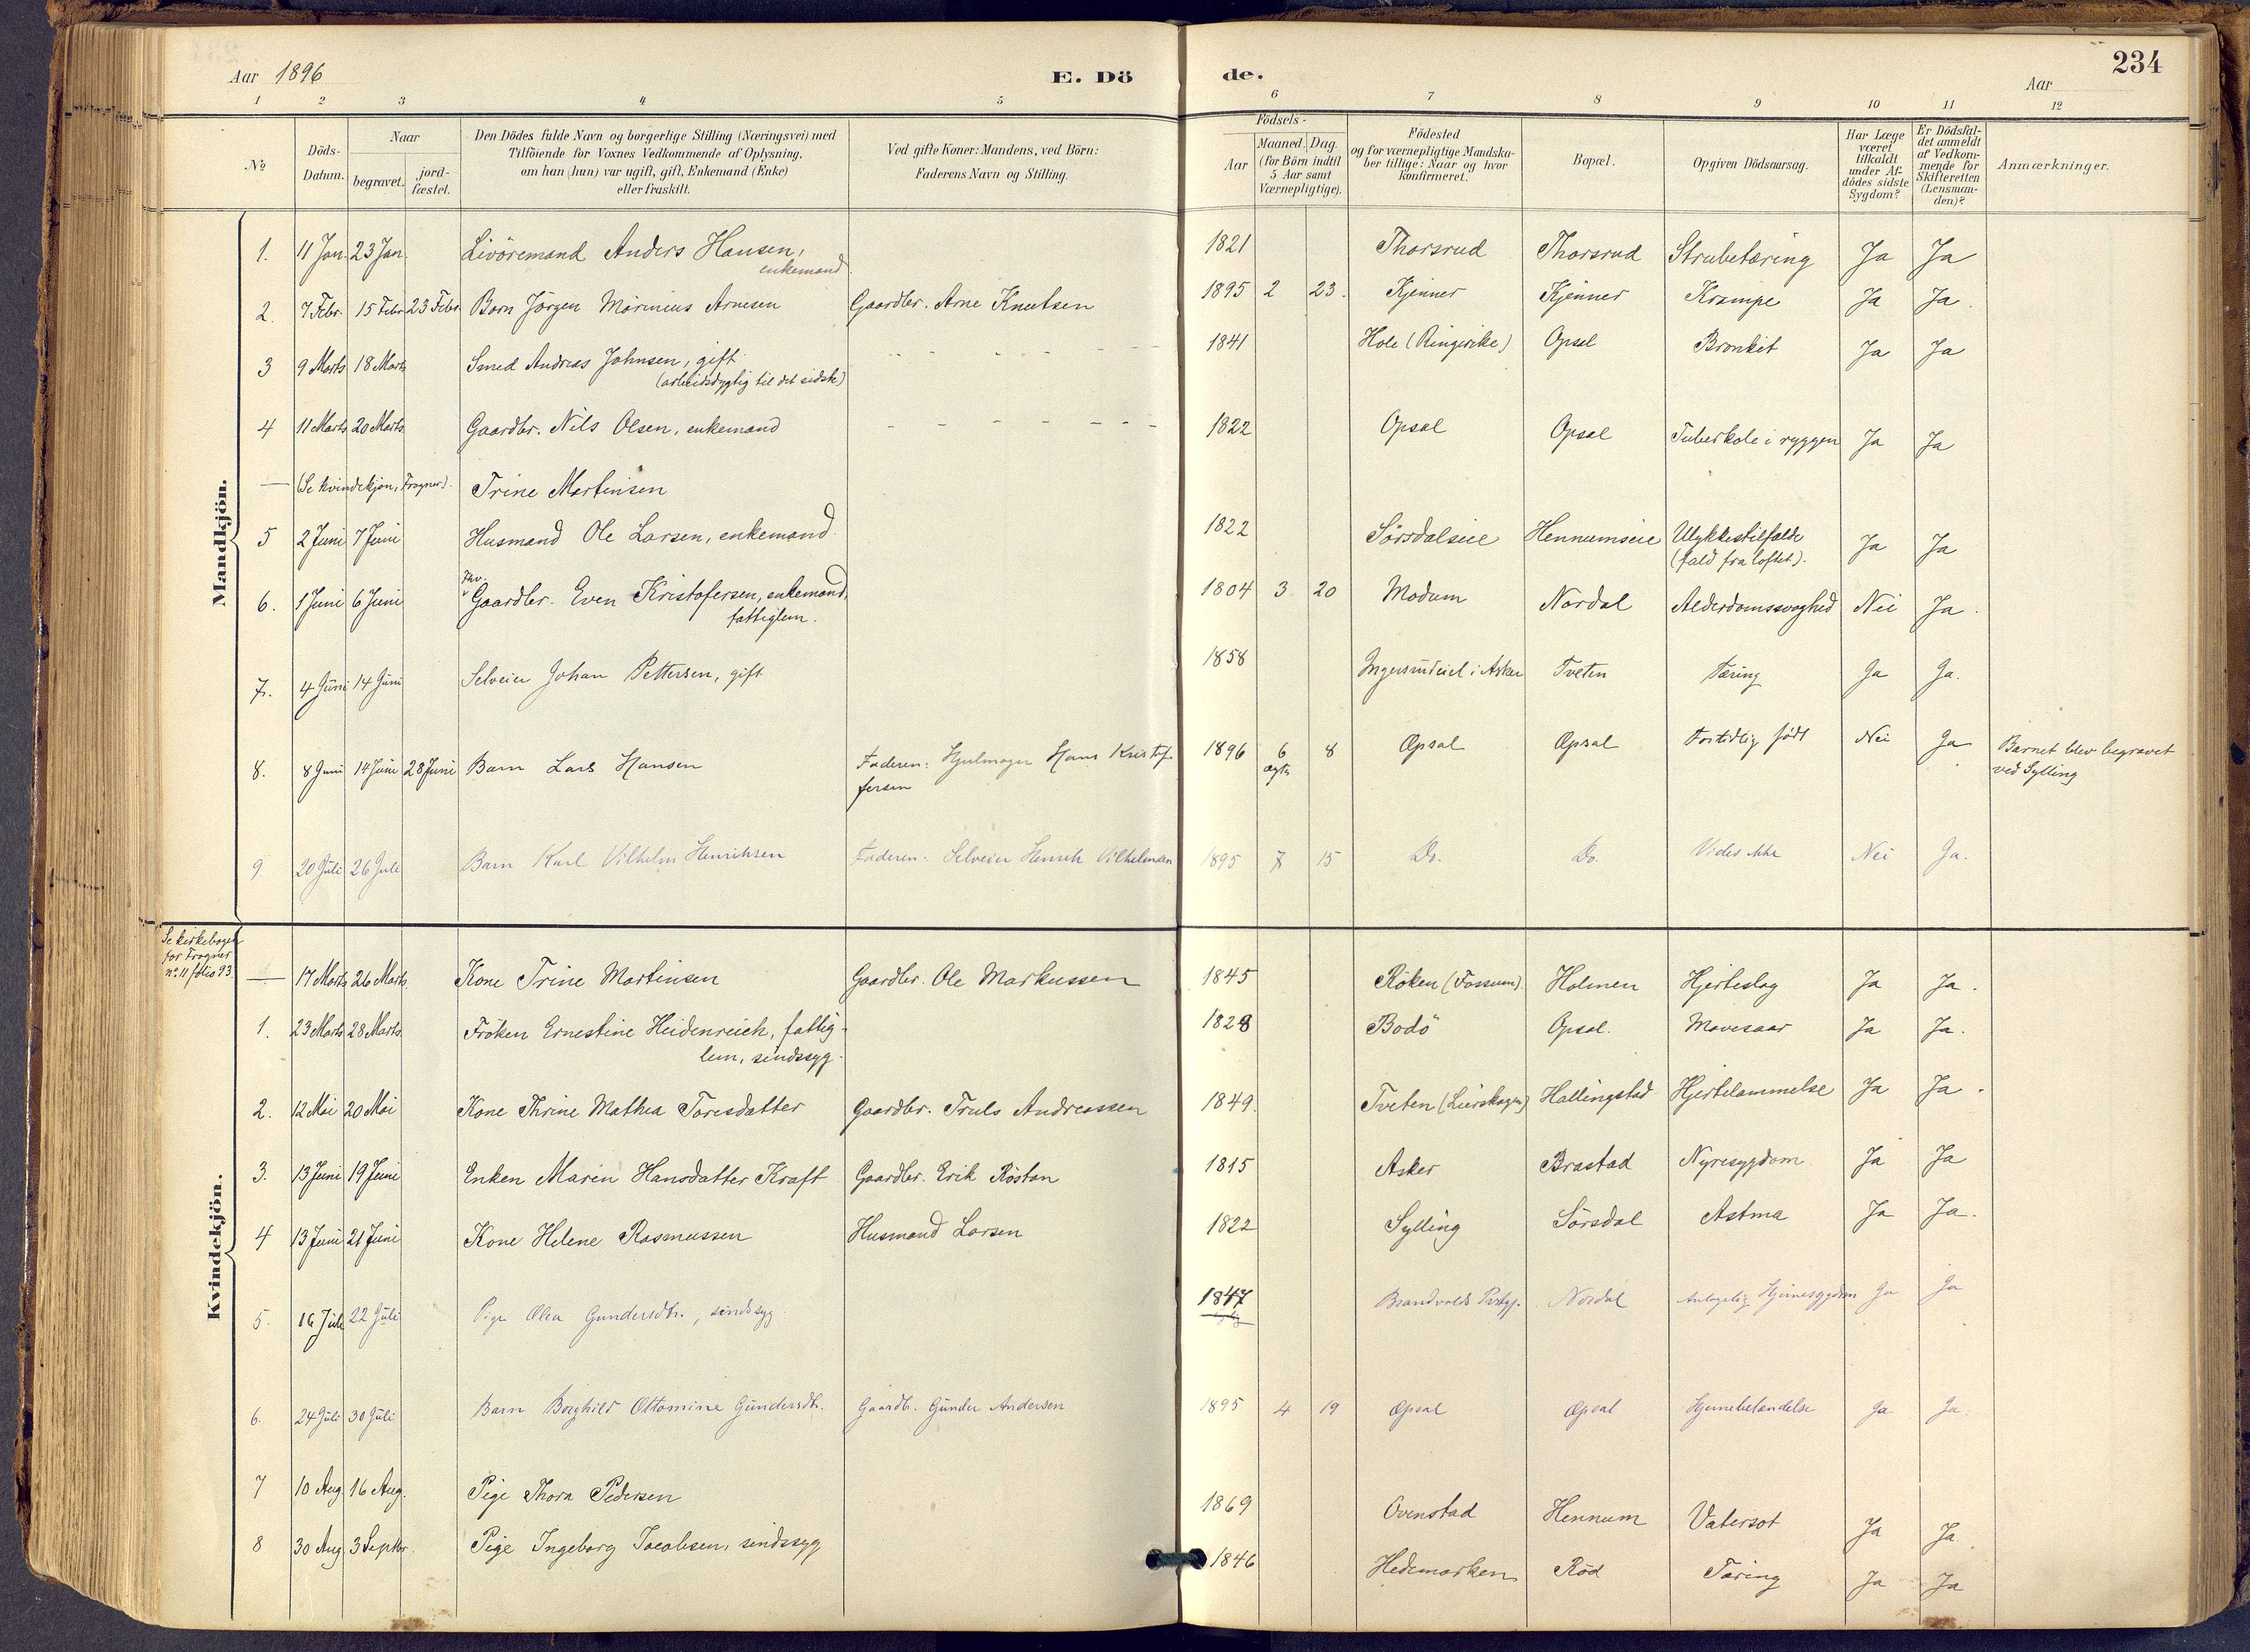 234
Aar 1896
E. Dö
de.
Aar
1 2 3 4 5 6 7 8 9 10 11 12
No
Döds-Datum.
Naar
begravet.
jord-fæstet.
Den Dödes fulde Navn og borgerlige Stilling (Næringsvei) med
Tilföiende for Voxnes Vedkommende af Oplysning,
om han (hun) var ugift, gift, Enkemand (Enke)
eller fraskilt.
Ved gifte Koner: Mandens, ved Börn:
Faderens Navn og Stilling.
Födsels-
Aar
Maaned. Dag.
(for Börn indtil
5 Aar samt
Værnepligtige).
Födested
og for værnepligtige Mandska-
ber tillige: Naar og hvor
konfirmeret.
Bopæl.
Opgiven Dödsaarsag.
Har Læge
været
tilkaldt
under Af-
dödes sidste
Sygdom?
Er Dödsfal-
det anmeldt
af Vedkom-
mende for
Skifteretten
(Lensman-
den)?
Anmærkninger.
Mandkjön.
1. 11 Jan. 23 Jan. Livöremand Anders Hansen, 1821 Thorsrud Thorsrud Strubetæring Ja Ja
enkemand
2. 7 Febr. 15 Febr 23 Febr. Barn Jörgen Marinius Arnesen Gaardbr. Arne Knutsen 1895 2 23. Kjenner Kjenner Krampe Ja Ja.
3 9 Marts 18 Marts Smed Andreas Johnsen, gift 1841 Hole (Ringerike) Opsal Bronkit Ja Ja
(arbeidsdygtig til det sidste)
4 11 Marts 20 Marts. Gaardbr. Nils Olsen, enkemand 1822 Opsal Opsal Tuberkole i ryggen Ja Ja
— (Se kvindekjön, Frogner). Trine Martinsen
5 2 Juni 7 Juni Husmand Ole Larsen, enkemand. 1822 Sörsdalseie Hennumseie Ulykkestilfælde Ja Ja
(fald fra loftet).
6. 1 Juni 6 Juni Gaardbr. Even Kristofersen, enkemand, 1804 3 20 Modum Nordal Alderdomssvaghed Nei Ja.
fattiglem.
7. 4 Juni 14 Juni Selveier Johan Pettersen, gift 1858 i Asker Tveten Tæring Ja Ja.
8. 8 Juni 14 Juni 28 Juni Barn Lars Hansen Faderen: Hjulmager Hans Kristof-
fersen 1896 6 8 Opsal Opsal Fortidlig födt Nei Ja Barnet blev begravet
ægte
ved Sylling
9 20 Juli 26 Juli Barn Karl Vilhelm Henriksen Faderen: Selveier Henrik Vilhelmsen 1895 7 15 Do. Do. Vides ikke Nei Ja.
Se kirkebogen
for Frogner
no. 11 folio 93
Kvindekjön.
— 17 Marts 26 Marts. Kone Trine Martinsen Gaardbr. Ole Markussen 1845 Röken (Fossum). Holmen Hjerteslag Ja Ja.
1. 23 Marts 28 Marts. Fröken Ernestine Heidenreich, fattig- 1828 Bodö Opsal. Mavesaar Ja Ja.
lem, sindssyg.
2. 12 Mai 20 Mai Kone Thrine Mathea Toresdatter Gaardbr. Truls Andreassen 1849. Tveten (Lierskogen) Hallingstad Hjertelammelse Ja Ja.
3. 13 Juni 19 Juni Enken Maren Hansdatter Kraft Gaardbr. Erik Röstan 1815 Asker Brastad Nyresygdom Ja Ja
4 13 Juni 21 Juni Kone Helene Rasmussen Husmand Larsen 1822 Sylling Sörsdal Astma Ja Ja.
5. 16 Juli 22 Juli Pige Olea Gundersdtr., sindssyg 1847 Brandvolds Prstgj. Nordal Antagelig Hjernesygdom Ja Ja
6. 24 Juli 30 Juli Barn Borghild Ottomine Gundersdtr. Gaardb. Gunder Andersen 1895 4 19 Opsal Opsal Hjernebetændelse Ja Ja.
7 10 Aug. 16 Aug. Pige Thora Pedersen 1869 Ovenstad Hennum Vatersot Ja Ja
8 30 Aug. 3 Septbr. Pige Ingeborg Jacobsen, sindssyg 1846 Hedemarken Röd Tæring Ja Ja